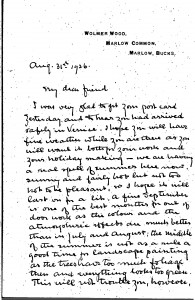 WOLMER WOOD,
MARLOW COMMON,
MARLOW, BUCKS.
Aug. 31st 1926.
My dear friend
I was very glad to get your post card
yesterday and to hear you had arrived
safely in Venice. I hope you will have
fine weather while you are there as you
will want it both for your work and
your holiday making – we are having
a real spell of summer here now,
sunny and fairly hot but not too
hot to be pleasant, so I hope it will
last on for a bit. A fine September
is one of the best months for out of
door work as the colour and the
atmospheric effects are much better
than in July and August, the middle
of the summer is not as a rule a
good time for landscape painting
as the trees have too much foliage
then and everything looks too green.
This will not trouble you, however